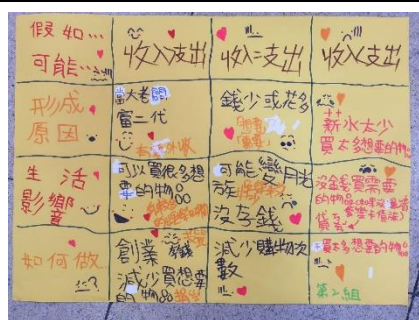 假如…
可能…
收入>支出
收入=支出
收入<支出
形成
原因
當大老闆
富二代
有意外收
錢少或花多
「想要」
「需要」
薪水太少
買太多想要的物品
生活
影響
可以買很多想
要的物品
可能變月光
族
沒存錢
沒錢買需要
的物品
如何做
創業
減少買想要
的物品
減少購物次
數
不買太多想要的物品
第2組